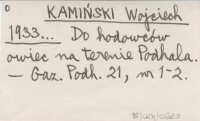 KAMIŃSKI Wojciech
1933... Do hodowców
owiec na terenie Podhala.
— Gaz. Podh. 21, nr 1-2.